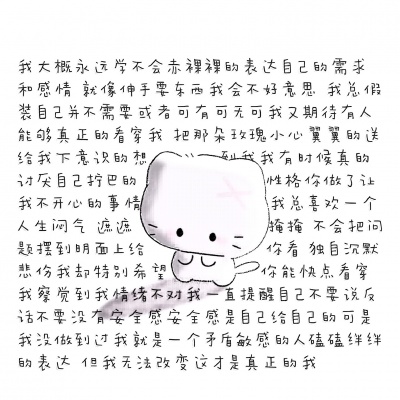 我大概永远学不会赤裸裸的表达自己的需求
和感情 就像伸手要东西我会不好意思 我总假
装自己并不需要或者可有可无可我又期待有人
能够真正的看穿我 把那朵玫瑰小心翼翼的送
给我下意识的想 到我我有时候真的
讨厌自己拧巴的 性格你做了让
我不开心的事情 我总喜欢一个
人生闷气 遮遮 掩掩 不会把问
题摆到明面上给 你看 独自沉默
悲伤我却特别希望 你能快点看穿
我察觉到我情绪不对我一直提醒自己不要说反
话不要没有安全感安全感是自己给自己的可是
我没做到过我就是一个矛盾敏感的人磕磕绊绊
的表达 但我无法改变这才是真正的我